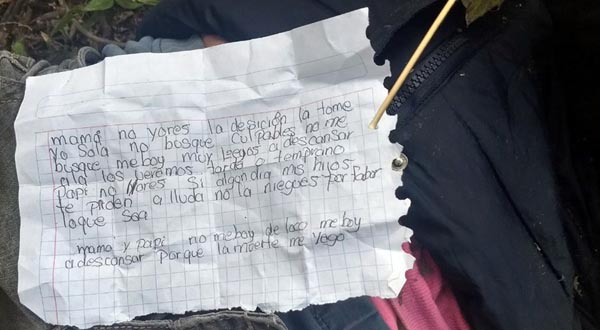 mamá no yores la desición la tome
Yo Sola no bosque culpables no me
busque meboy muy lejos a descansar
alá los veremos tarde o temprano
papi no llores si algun dia mis hijos
te piden alluda no la niegues por fabor
loque sea
mama y papi no meboy de loca me boy
a descansar porque la muerte me yego